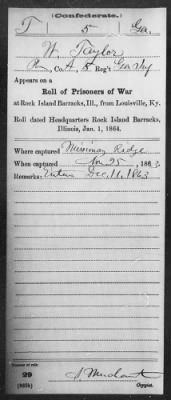 (Confederate.)
T 5 Ga.
W. Taylor
Co. A, 5 Reg't Ga. Inf.
Appears on a
Roll of Prisoners of War
at Rock Island Barracks, Ill., from Louisville, Ky.
Roll dated Headquarters Rock Island Barracks,
Illinois, Jan. 1, 1864.
Where captured Missionary Ridge
When captured Nov 25, 1863.
Remarks: Dec. 11, 1863
Number of roll:
29
Copyist.